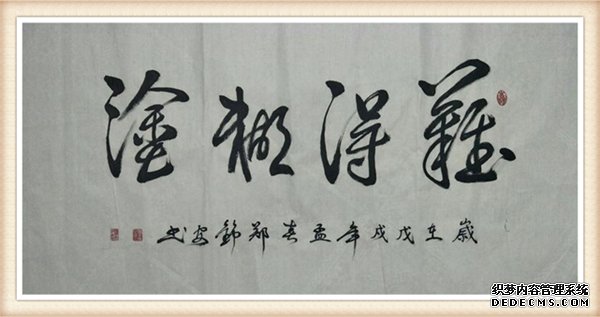 難得糊塗
歲在戊戌年孟春鄭书
织梦内容管理系统
DEDECMS.COM